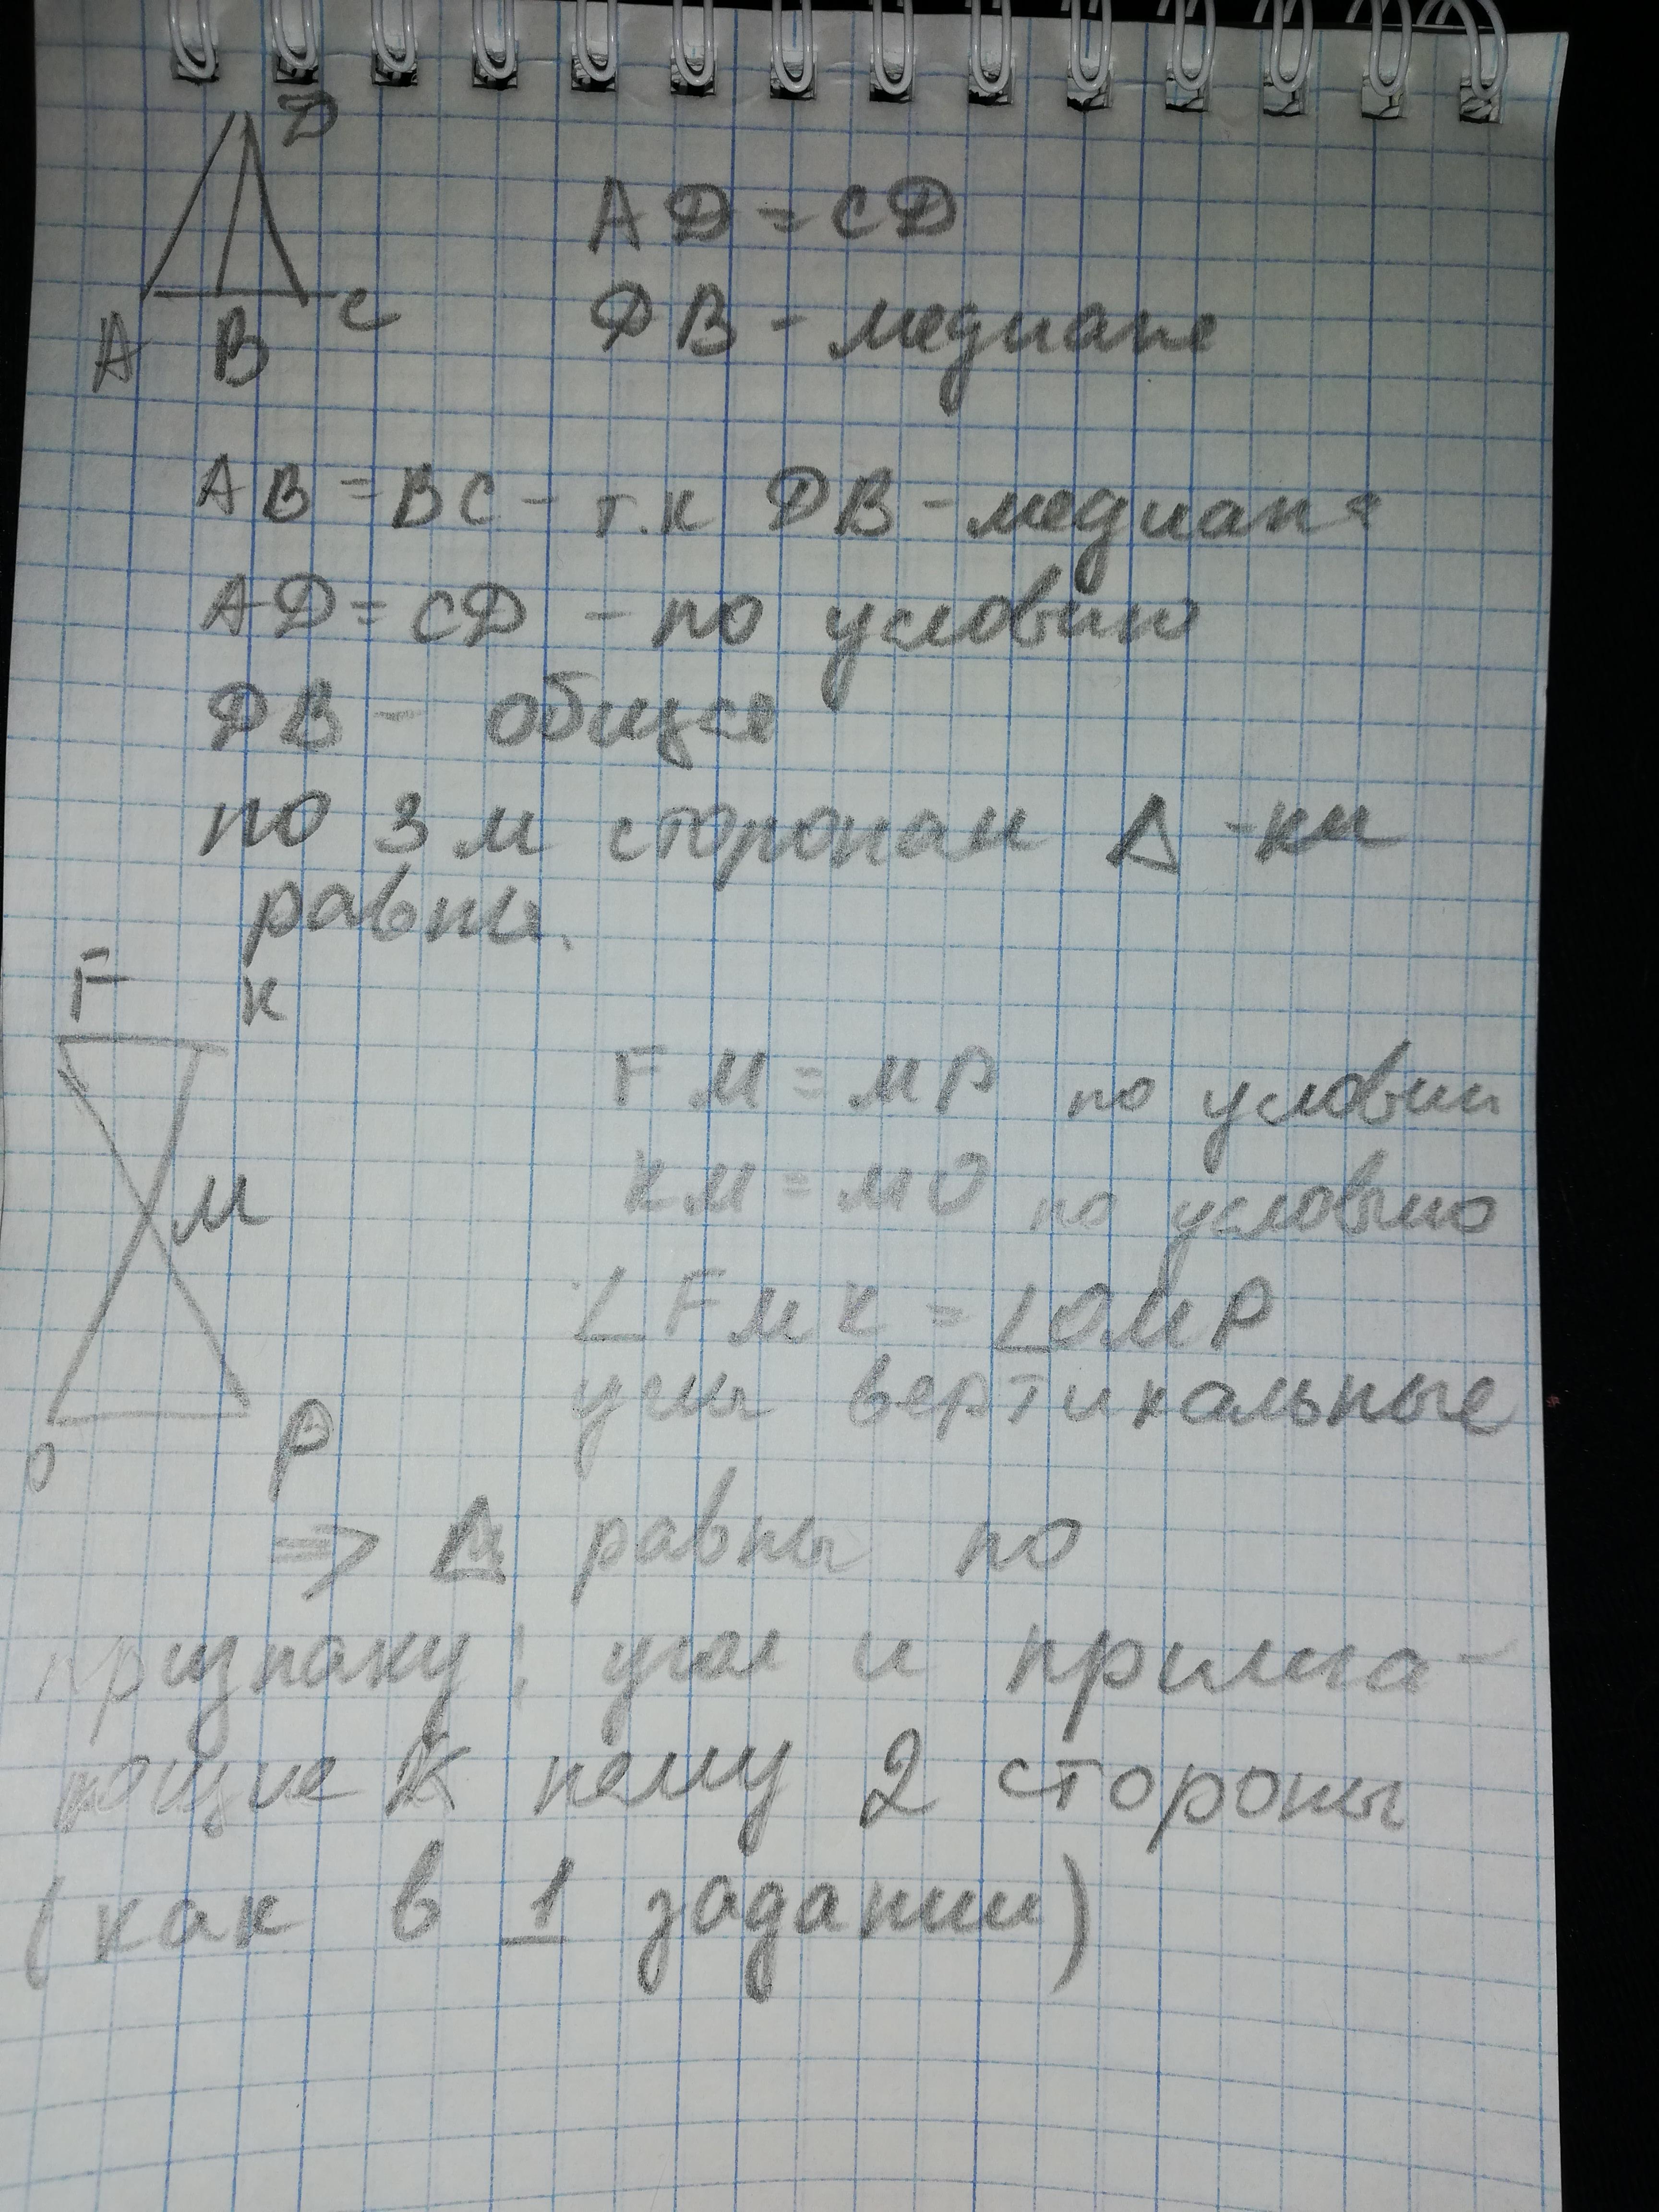 D
A B C
AD = CD
DB - медиана
AB = BC - т.к DB - медиана
AD = CD - по условию
DB - общая
по 3 м сторонам Δ -ки
равны.
F K
M
O P
FM = MP по условии
KM = MO по условию
∠FMK = ∠OMP
углы вертикальные
=> Δ равны по
признаку: угол и прилега-
ющие к нему 2 стороны
(как в 1 задании)